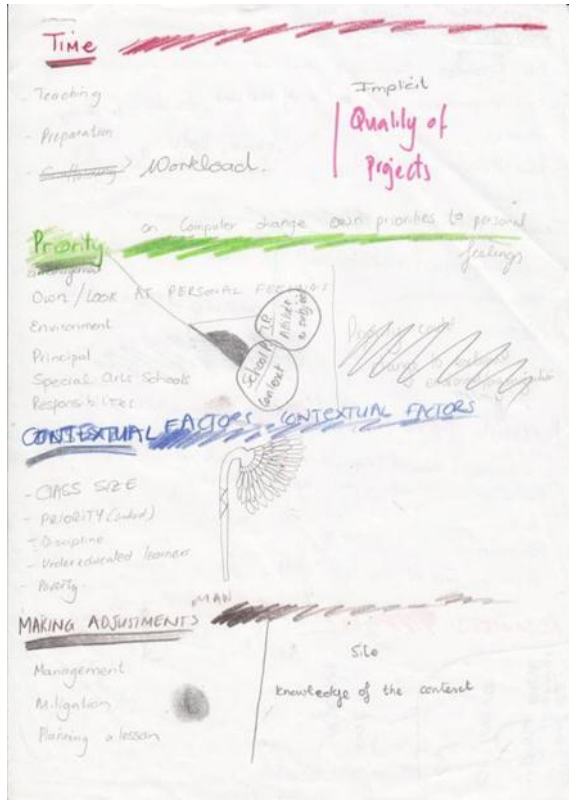 TIME
- Teaching
- Preparation
- Workload.
Implicit
Quality of
Projects
on Computer change own priorities to personal
feelings
Priority
Own / LOOK AT PERSONAL FEELINGS
Environment
Principal
Special Arts Schools
Responsibilities
School
Context
I.P
Attitude
to subject
CONTEXTUAL FACTORS - CONTEXTUAL FACTORS
- CLASS SIZE
- PRIORITY
- Discipline
- Undereducated learners
- Poverty
MAN
MAKING ADJUSTMENTS
Management
Mitigation
Planning a lesson
Silo
Knowledge of the context